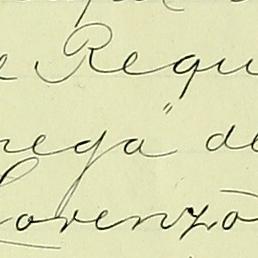 e Requ
rega" de
Lorenzo